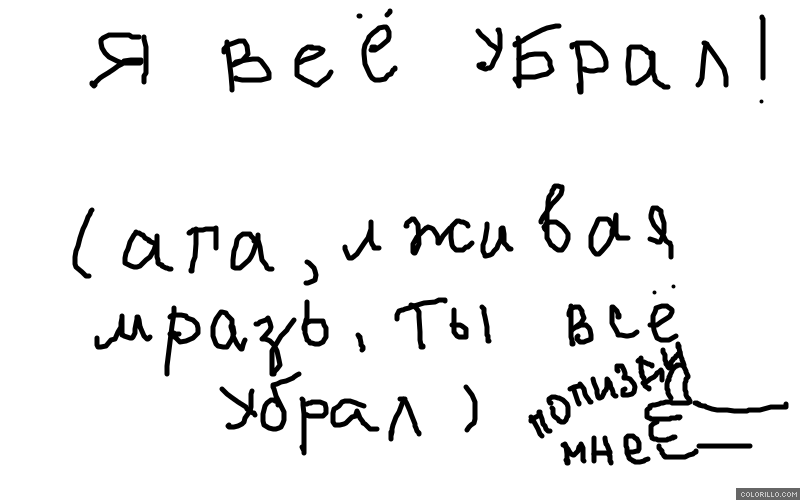 Я веё убрал!
(ага, лживая
мразь, ты всё
убрал)
попизди
мне
COLORILLO.COM